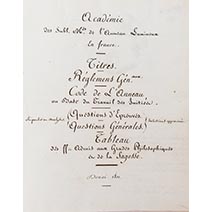 Académie
des Subl. de l'Anneau Lumineux
En france.
Titres.
Réglemens Gén.aux
Code de L'Anneau
ou Base du Travail des Initiés.
(Questions d'Epreuves.
Questions Générales.)
Tableau
des ff. admis aux Grades Philosophiques
de la Sagesse.
Douai